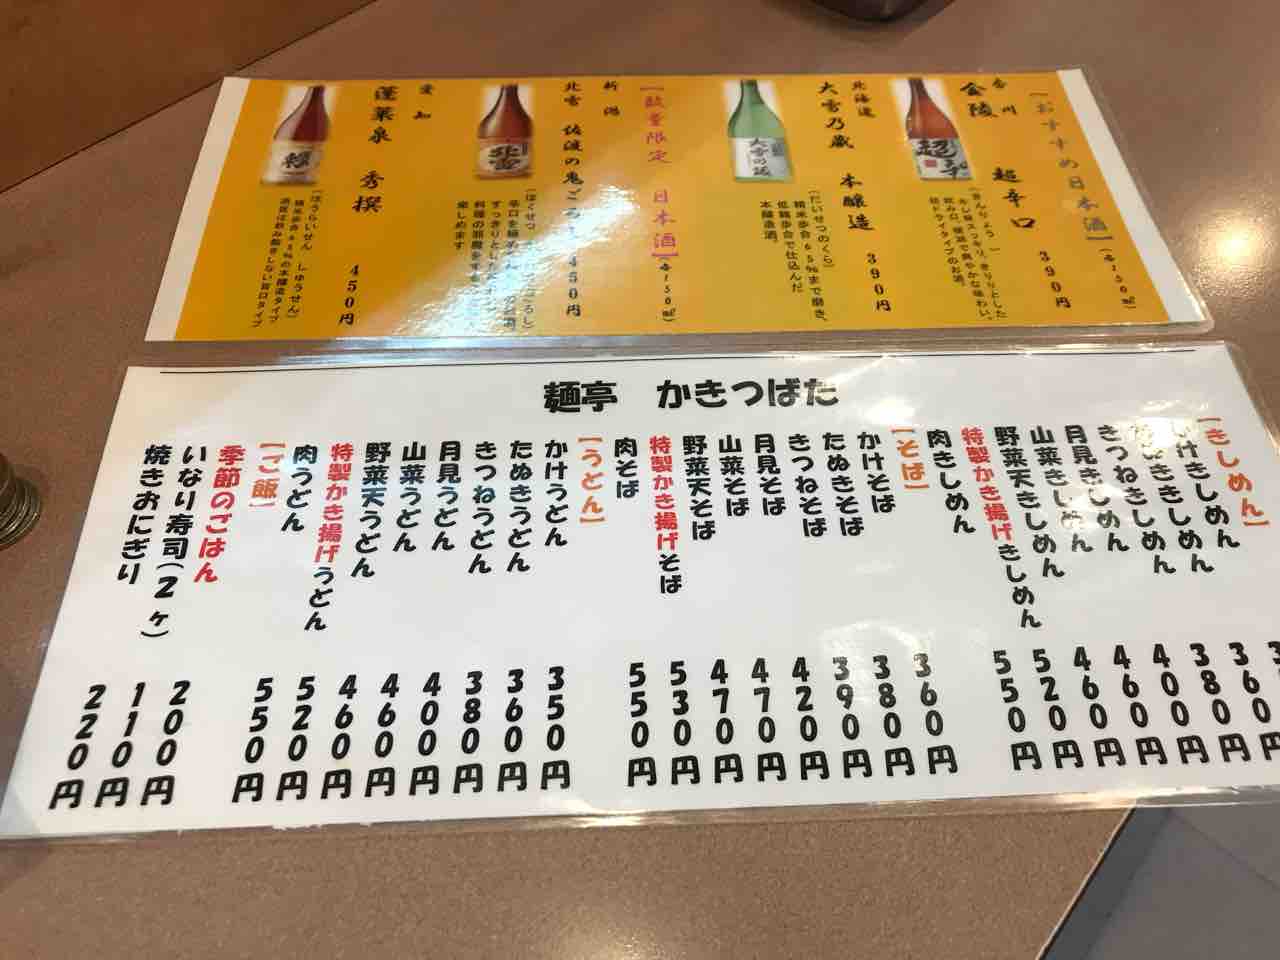 【おすすめ日本酒】(各150㎖)
香川
金陵 超辛口 390円
(きんりょう)
北海道
大雪乃蔵 本醸造 390円
(だいせつのくら)
精米歩合65%まで磨き、
低精歩合で仕込んだ
本醸造酒。
【数量限定 日本酒】(各150㎖)
新潟
北雪 佐渡の鬼ころし 450円
愛知
蓬莱泉 秀撰 450円
(ほうらいせん しゅうせん)
精米歩合65%の本醸造タイプ
酒質は飲み飽きしない旨口タイプ
麺亭 かきつばた
【きしめん】
かけきしめん
たぬききしめん 360円
きつねきしめん 380円
月見きしめん 400円
山菜きしめん 460円
野菜天きしめん 460円
特製かき揚げきしめん 520円
肉きしめん 550円
【そば】
かけそば 360円
たぬきそば 380円
きつねそば 390円
月見そば 420円
山菜そば 470円
野菜天そば 470円
特製かき揚げそば 530円
肉そば 550円
【うどん】
かけうどん 350円
たぬきうどん 360円
きつねうどん 380円
月見うどん 400円
山菜うどん 460円
野菜天うどん 460円
特製かき揚げうどん 520円
肉うどん 550円
【ご飯】
季節のごはん 200円
いなり寿司(2ヶ) 110円
焼きおにぎり 220円